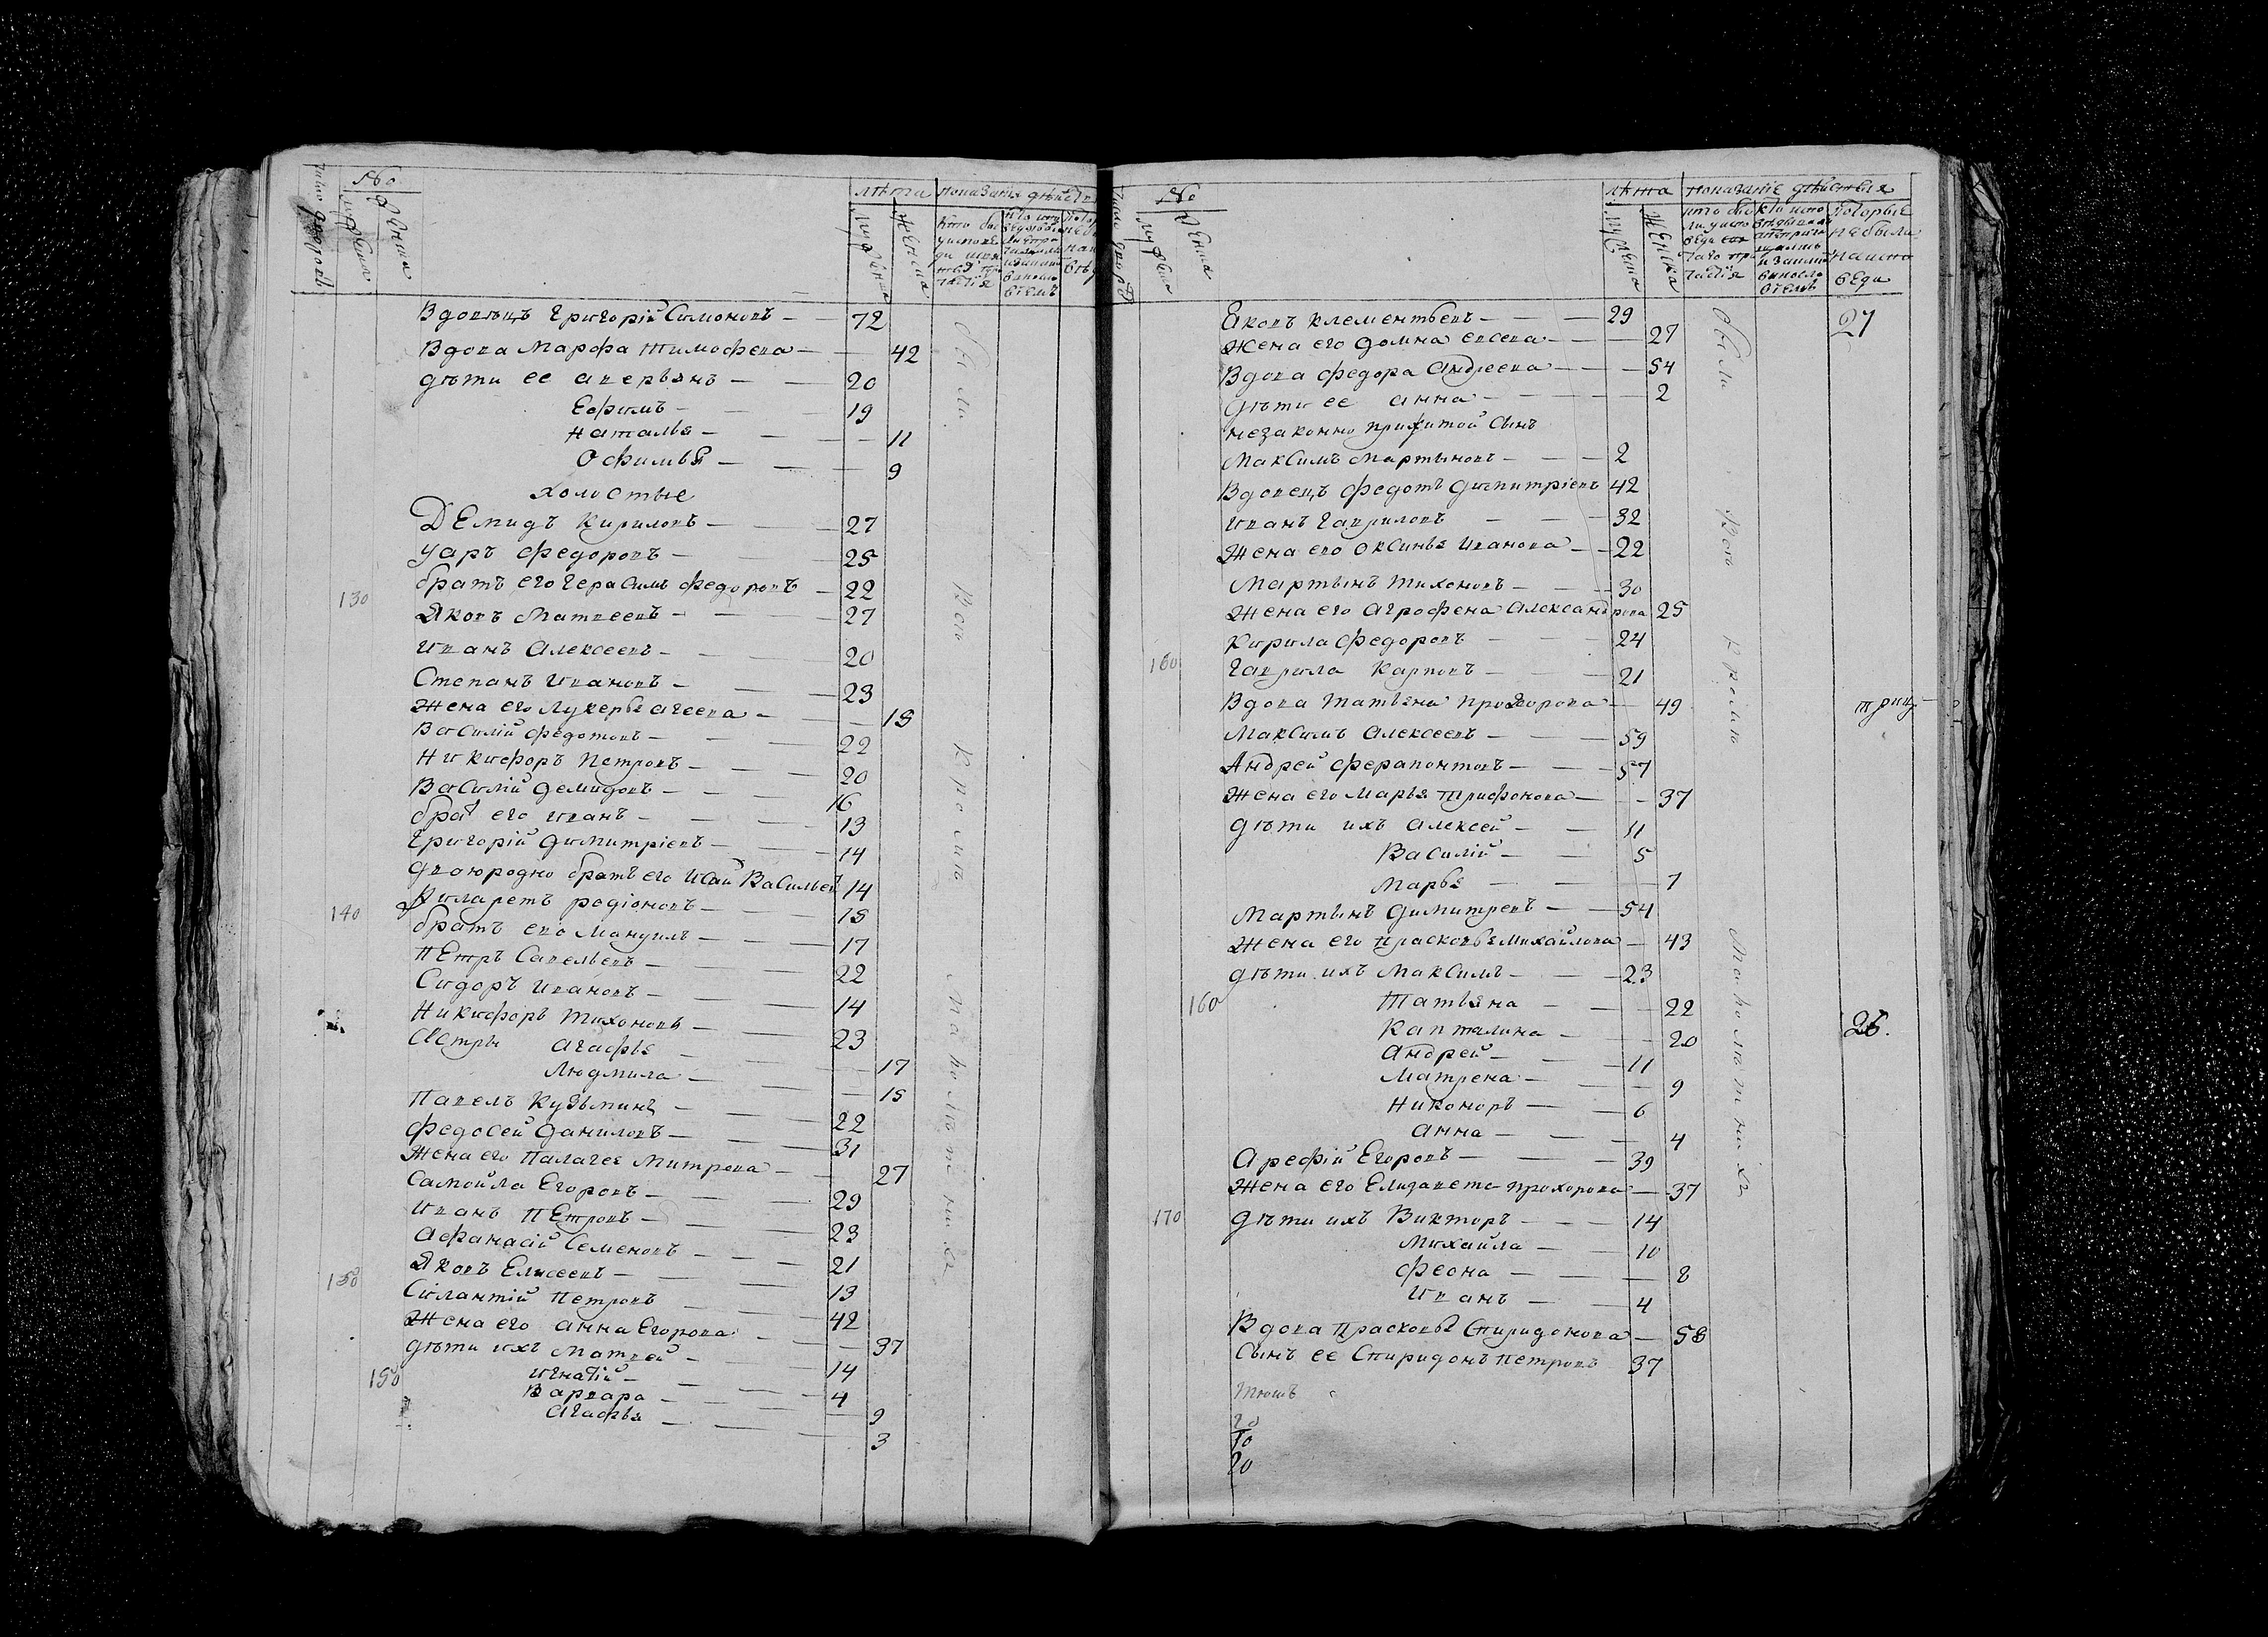 №
лѣта показания дѣйстви
число дворовъ
Вдовецъ Григорій Симоновъ — 72
Вдова Марфа Тимофева — 42
дѣти ее аверьянъ — 20
Ефимъ — 19
Наталья — 11
Офимья — 9
холостые
Демидъ Кириловъ — 27
Уаръ Федоровъ — 25
братъ его Герасимъ Федоровъ — 22
130
Яковъ Матвеевъ — 27
Иванъ Алексеевъ — 20
Степанъ Ивановъ — 23
Жена его Лукерья агеева — 18
Василий Федотовъ — 22
Никифоръ Петровъ — 20
Василий Демидовъ — 16
брат его иванъ — 13
Григорій Димитріевъ — 14
двоюродно братъ его Исай Васильев 14
140 Филаретъ родіоновъ — 18
братъ его Мануилъ — 17
Петръ Савельевъ — 22
Сидоръ Ивановъ — 14
Никифоръ Тихоновъ — 23
Сестры агафья — 17
Людмила — 15
Павелъ Кузьминъ — 22
Федосей Даниловъ — 31
Жена его Палагея Митрева — 27
Самойла Егоровъ — 29
Иванъ Петровъ — 23
Афанасій Семеновъ — 21
130 Яковъ Елисеевъ — 13
Силантій Петровъ — 42
Жена его анна Егорова — 37
дѣти ихъ Матвей — 14
150 игнатій — 4
Варвара — 9
Агафья — 3
Были Всѣ Кромѣ Малолѣтнихъ
№
лѣта показаніе дѣйствія
которые небыли наиспо веди
Яковъ Клементьевъ — 29
27
Жена его Домна евсева — 27
Вдова Федора Андреева — 54
дѣти ее анна — 2
незаконно прижитой сынъ
Максимъ Мартыновъ — 2
Вдовецъ Федотъ Димитріевъ 42
Иванъ Гавриловъ — 32
Жена его Оксинья Иванова — 22
Мартынъ Тихоновъ — 30
Жена его Агрофена Александрова 25
Кирила Федоровъ — 24
160 Гаврила Карповъ — 21
Вдова Татьяна Прохорова — 49
Максимъ Алексеевъ — 59
Андрей Ферапонтовъ — 57
Жена его Марья Трифонова — 37
Дѣти ихъ Алексей — 11
Василій — 5
Марья — 7
Мартынъ Димитревъ — 54
Жена его Прасковья Михайлова — 43
дѣти ихъ Максимъ — 23
160 Татьяна — 22
Капталина — 20
26.
Андрей — 11
Матрена — 9
Никоноръ — 6
анна — 4
Арефій Егоровъ — 39
Жена его Елизавета Прохорова — 37
170 Дѣти ихъ Викторъ — 14
Михайла — 10
Феона — 8
Иванъ — 4
Вдова Прасковья Спиридонова — 58
Сынъ ее Спиридонъ Петровъ 37
20
10
20
Были Всѣ Кромѣ Малолѣтнихъ